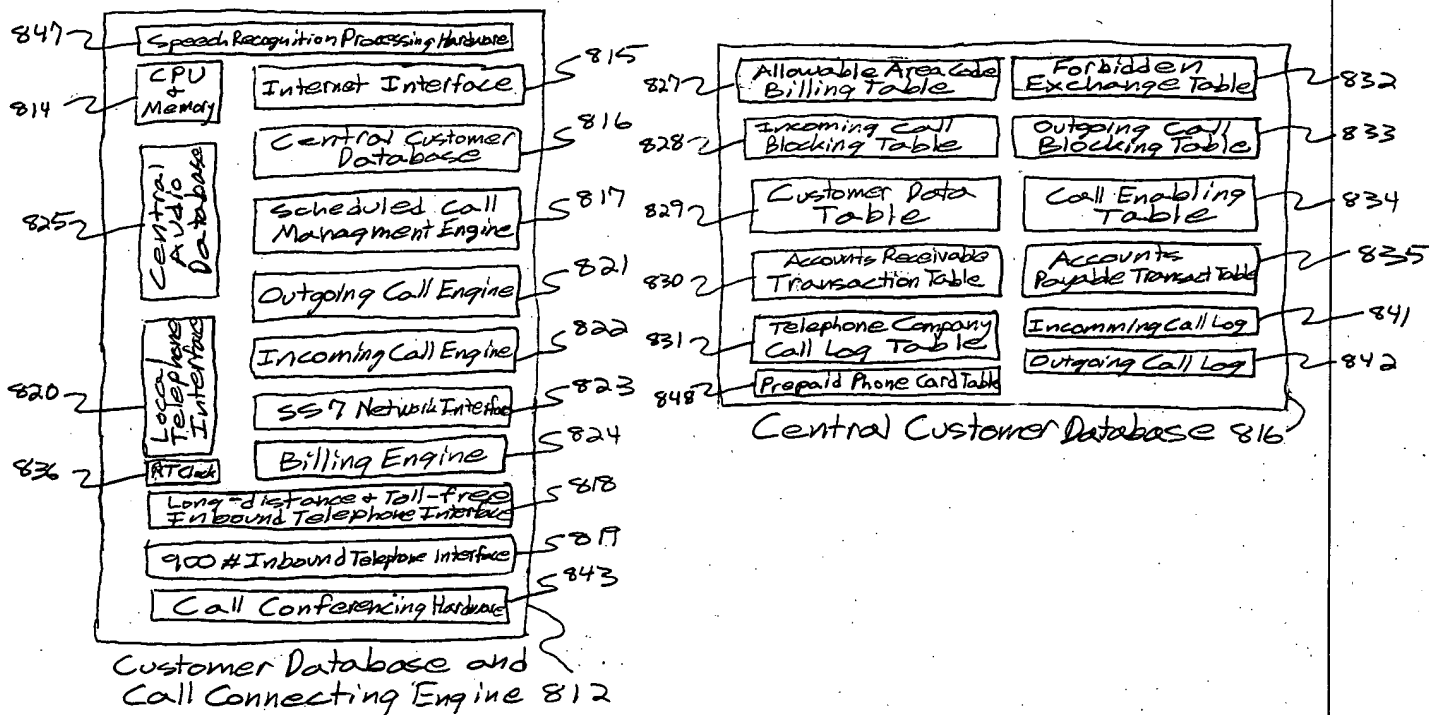 847
Speech Recognition Processing Hardware
CPU
+
Memory
814
Internet Interface
815
Central Customer
Database
816
Central
Audio
Database
825
Scheduled Call
Managment Engine
817
Outgoing Call Engine
821
Local
Telephone
Interface
820
Incoming Call Engine
822
SS7 Network Interface
823
Billing Engine
824
RT Clock
836
Long-distance + Toll-free
Inbound Telephone Interface
818
900 # Inbound Telephone Interface
819
Call Conferencing Hardware
843
Customer Database and
Call Connecting Engine 812
827
Allowable Area Code
Billing Table
Forbidden
Exchange Table
832
828
Incoming Call
Blocking Table
Outgoing Call
Blocking Table
833
829
Customer Data
Table
Call Enabling
Table
834
830
Accounts Receivable
Transaction Table
Accounts
Payable Transact Table
835
831
Telephone Company
Call Log Table
Incomming Call Log
841
Outgoing Call Log
842
848
Prepaid Phone Card Table
Central Customer Database 816